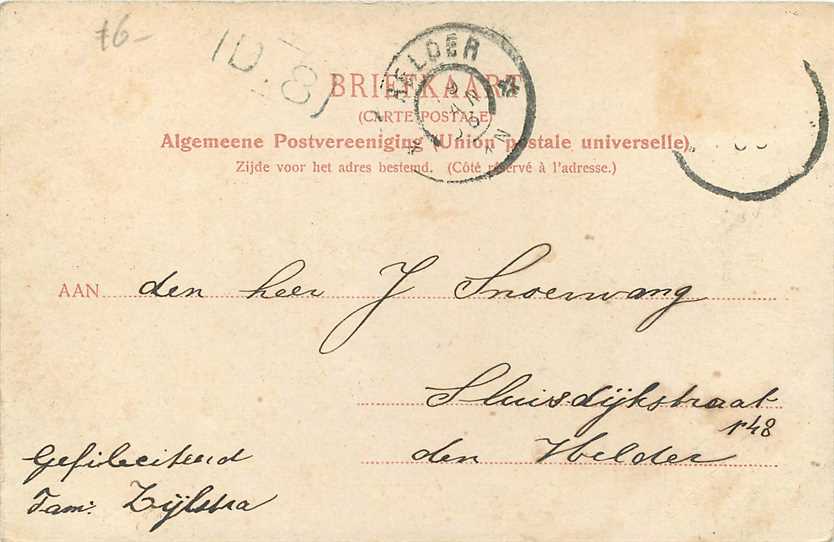 f6-
ID.8)
HELDER
BRIEFKAART
(CARTE POSTALE)
Algemeene Postvereeniging (Union postale universelle)
Zijde voor het adres bestemd. (Côté réservé à l'adresse.)
AAN den heer J Snoerwang
Sluisdijkstraat
148
den Helder
Gefiliciteerd
Fam: Zijlstra